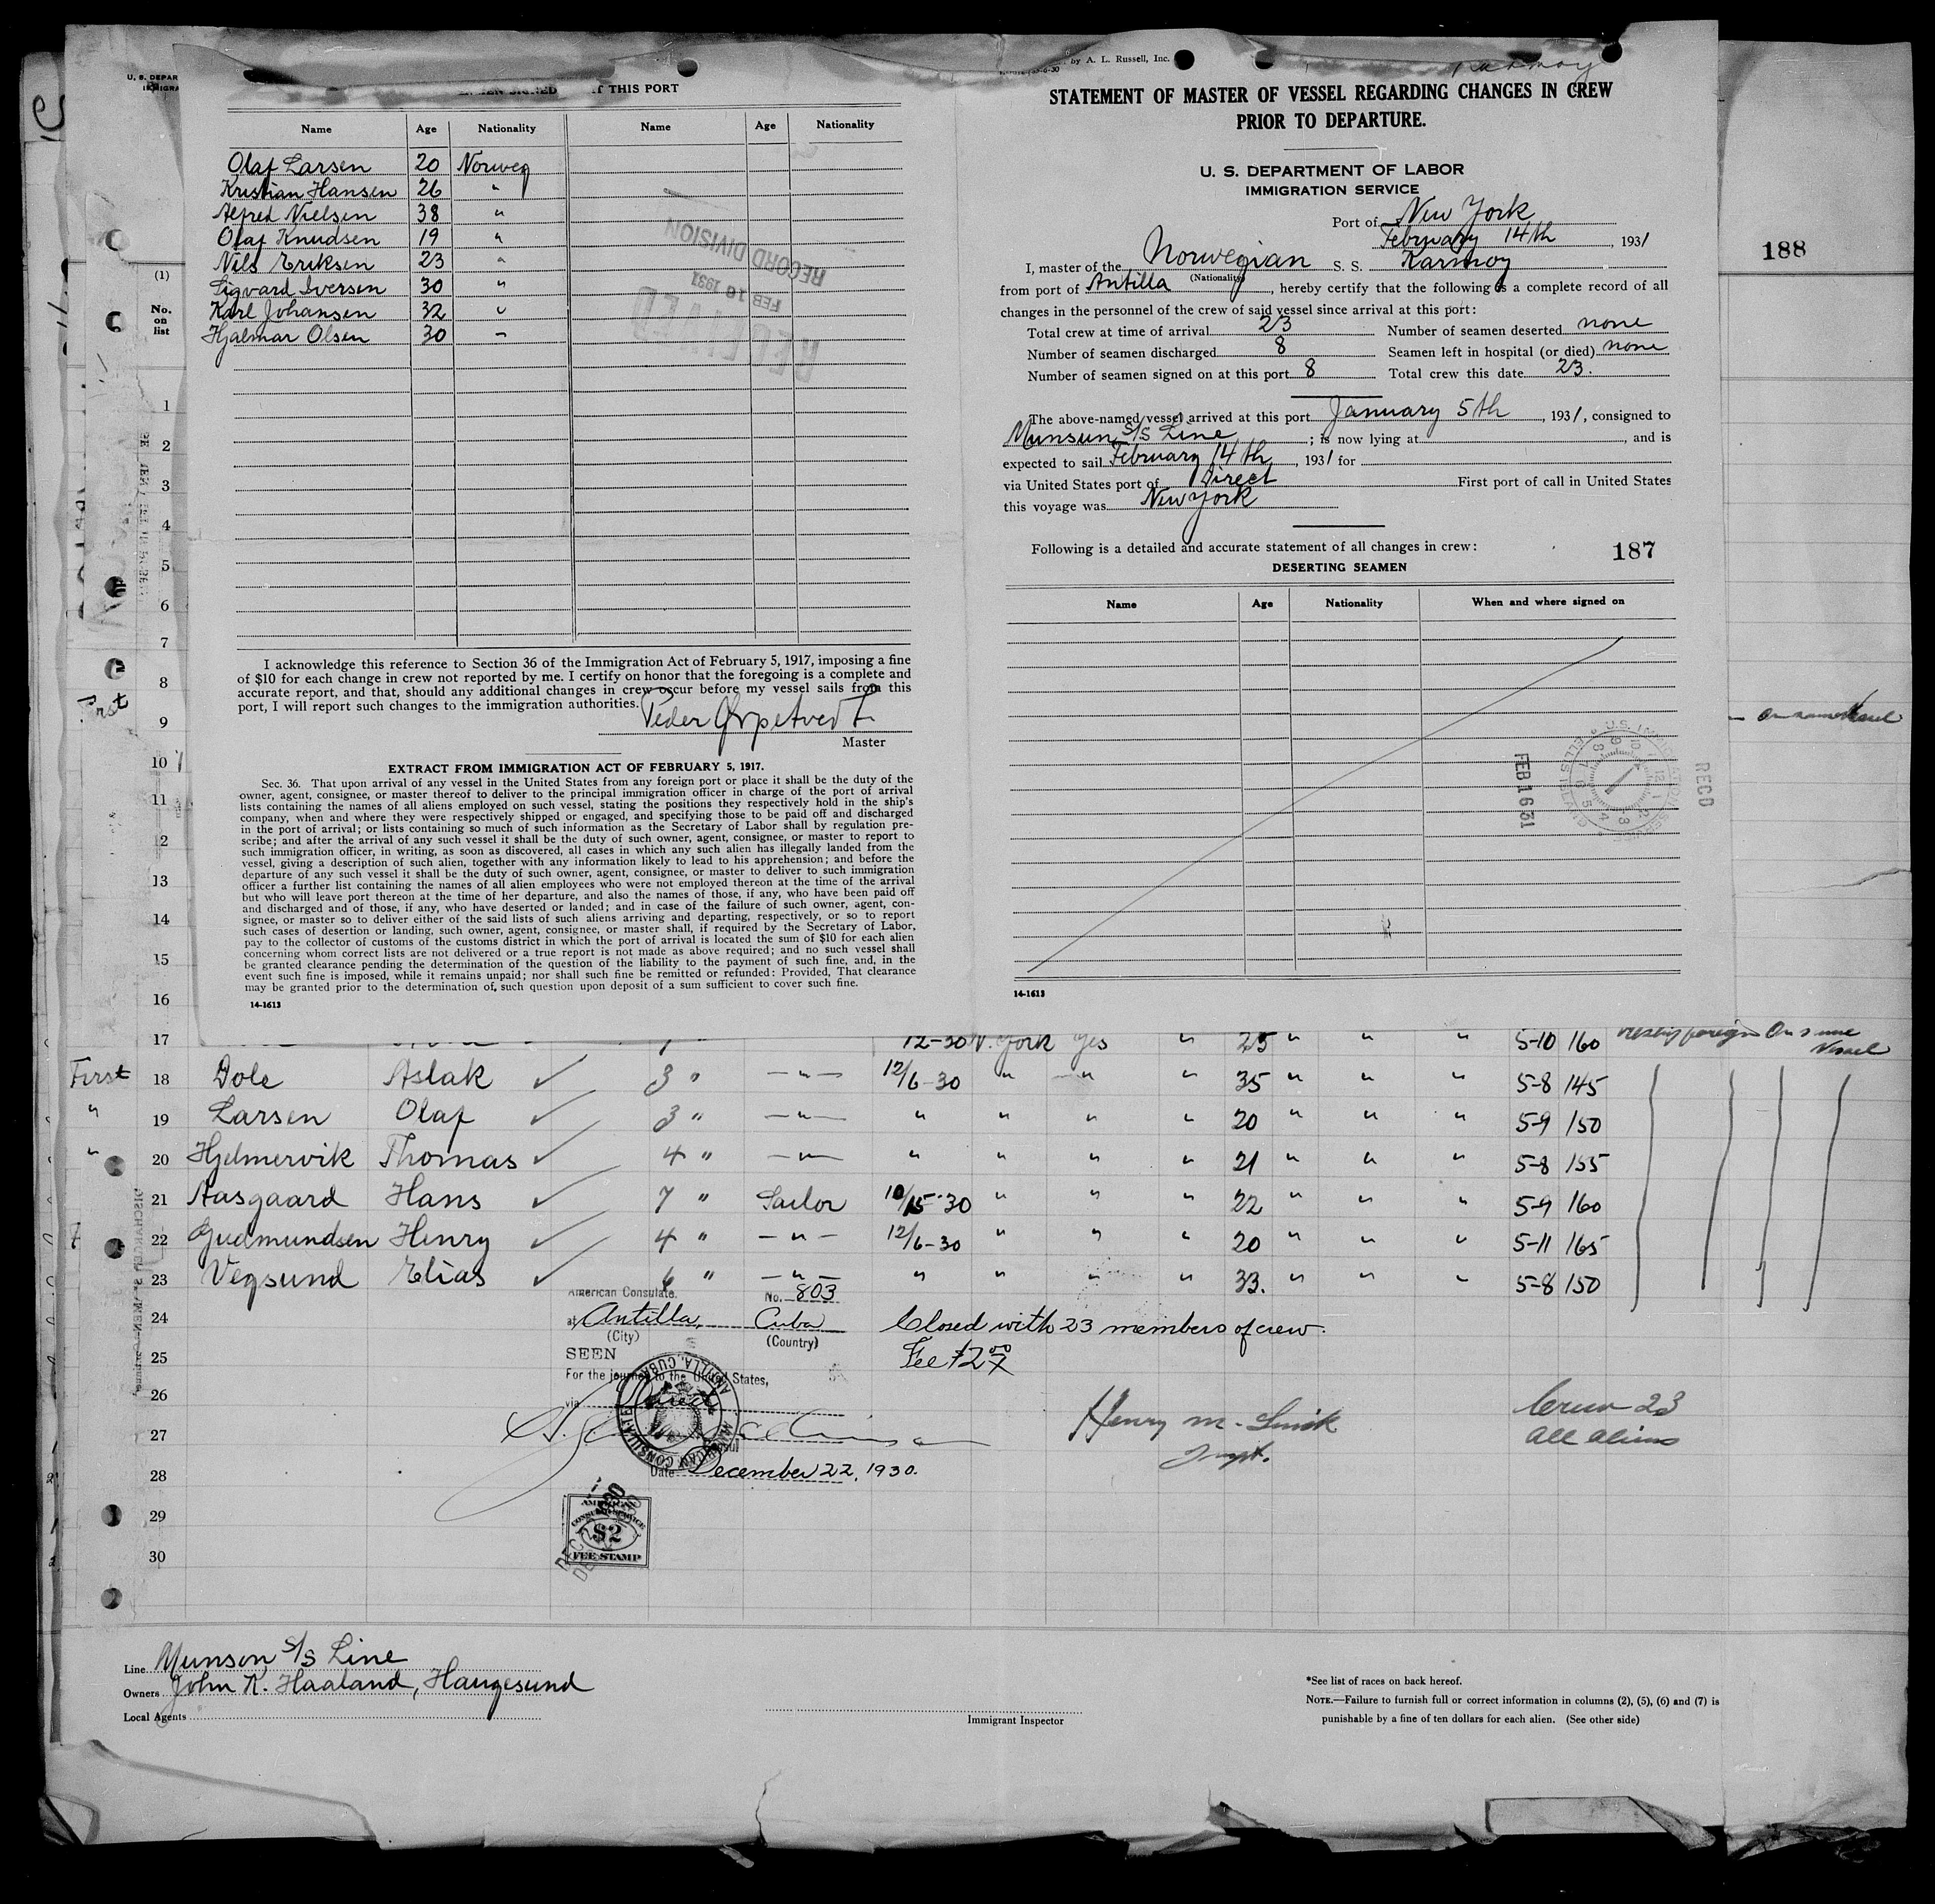 U. S. DEPAR
IMMIGRA
THIS PORT
Name Age Nationality Name Age Nationality
Olaf Larsen 20 Norweg
Kristian Hansen 26 "
Alfred Nielsen 38 "
Olaf Knudsen 19 "
Nils Eriksen 23 "
Sigvard Iversen 30 "
Karl Johansen 32 "
Hjalmar Olsen 30 "
RECORD DIVISION
FEB 16 1931
RECEIVED
I acknowledge this reference to Section 36 of the Immigration Act of February 5, 1917, imposing a fine
of $10 for each change in crew not reported by me. I certify on honor that the foregoing is a complete and
accurate report, and that, should any additional changes in crew occur before my vessel sails from this
port, I will report such changes to the immigration authorities.
Peder
Master
EXTRACT FROM IMMIGRATION ACT OF FEBRUARY 5, 1917.
Sec. 36. That upon arrival of any vessel in the United States from any foreign port or place it shall be the duty of the
owner, agent, consignee, or master thereof to deliver to the principal immigration officer in charge of the port of arrival
lists containing the names of all aliens employed on such vessel, stating the positions they respectively hold in the ship's
company, when and where they were respectively shipped or engaged, and specifying those to be paid off and discharged
in the port of arrival; or lists containing so much of such information as the Secretary of Labor shall by regulation pre-
scribe; and after the arrival of any such vessel it shall be the duty of such owner, agent, consignee, or master to report to
such immigration officer, in writing, as soon as discovered, all cases in which any such alien has illegally landed from the
vessel, giving a description of such alien, together with any information likely to lead to his apprehension; and before the
departure of any such vessel it shall be the duty of such owner, agent, consignee, or master to deliver to such immigration
officer a further list containing the names of all alien employees who were not employed thereon at the time of the arrival
but who will leave port thereon at the time of her departure, and also the names of those, if any, who have been paid off
and discharged and of those, if any, who have deserted or landed; and in case of the failure of such owner, agent, con-
signee, or master so to deliver either of the said lists of such aliens arriving and departing, respectively, or so to report
such cases of desertion or landing, such owner, agent, consignee, or master shall, if required by the Secretary of Labor,
pay to the collector of customs of the customs district in which the port of arrival is located the sum of $10 for each alien
concerning whom correct lists are not delivered or a true report is not made as above required; and no such vessel shall
be granted clearance pending the determination of the question of the liability to the payment of such fine, and, in the
event such fine is imposed, while it remains unpaid; nor shall such fine be remitted or refunded: Provided, That clearance
may be granted prior to the determination of such question upon deposit of a sum sufficient to cover such fine.
14-1613
by A. L. Russell, Inc.
STATEMENT OF MASTER OF VESSEL REGARDING CHANGES IN CREW
PRIOR TO DEPARTURE.
U. S. DEPARTMENT OF LABOR
IMMIGRATION SERVICE
Port of New York
February 14th, 1931
I, master of the Norwegian S. S. Karmoy
(Nationality)
from port of Antilla, hereby certify that the following is a complete record of all
changes in the personnel of the crew of said vessel since arrival at this port:
Total crew at time of arrival 23 Number of seamen deserted none
Number of seamen discharged 8 Seamen left in hospital (or died) none
Number of seamen signed on at this port 8 Total crew this date 23.
The above-named vessel arrived at this port January 5th, 1931, consigned to
Munson S/S Line; is now lying at , and is
expected to sail February 14th, 1931 for
via United States port of Direct First port of call in United States
this voyage was New York
Following is a detailed and accurate statement of all changes in crew:
187
DESERTING SEAMEN
Name Age Nationality When and where signed on
FEB 16 31
RECD
14-1613
188
(1)
No.
on
list
1
2
3
4
5
6
7
8
First
9
10
11
12
13
14
15
16
17 12-30 N. York Yes " 25 " " " 5-10 160 foreign On same Vessel
First 18 Dole Aslak 3 " -"- 12/6-30 " " " 35 " " " 5-8 145
" 19 Larsen Olaf 3 " -"- " " " " 20 " " " 5-9 150
" 20 Hjelmervik Thomas 4 " -"- " " " " 21 " " " 5-8 155
21 Aasgaard Hans 7 " Sailor 10/15-30 " " " 22 " " " 5-9 160
22 Gudmundsen Henry 4 " -"- 12/6-30 " " " 20 " " " 5-11 165
23 Vegsund Elias 6 " -"- " " " " 33. " " " 5-8 150
American Consulate. No. 803
24 at Antilla, Cuba Closed with 23 members of crew.
(City) (Country)
25 SEEN Fee $2.00
For the journey to the United States,
26 via Direct
27 Henry M. Smith Crew 23
Inspt. all aliens
28 Date December 22, 1930.
29
AMERICAN
CONSULAR SERVICE
$2
FEE STAMP
30
Line Munson S/S Line
Owners John K. Haaland, Haugesund
Local Agents
Immigrant Inspector
*See list of races on back hereof.
NOTE.—Failure to furnish full or correct information in columns (2), (5), (6) and (7) is
punishable by a fine of ten dollars for each alien. (See other side)